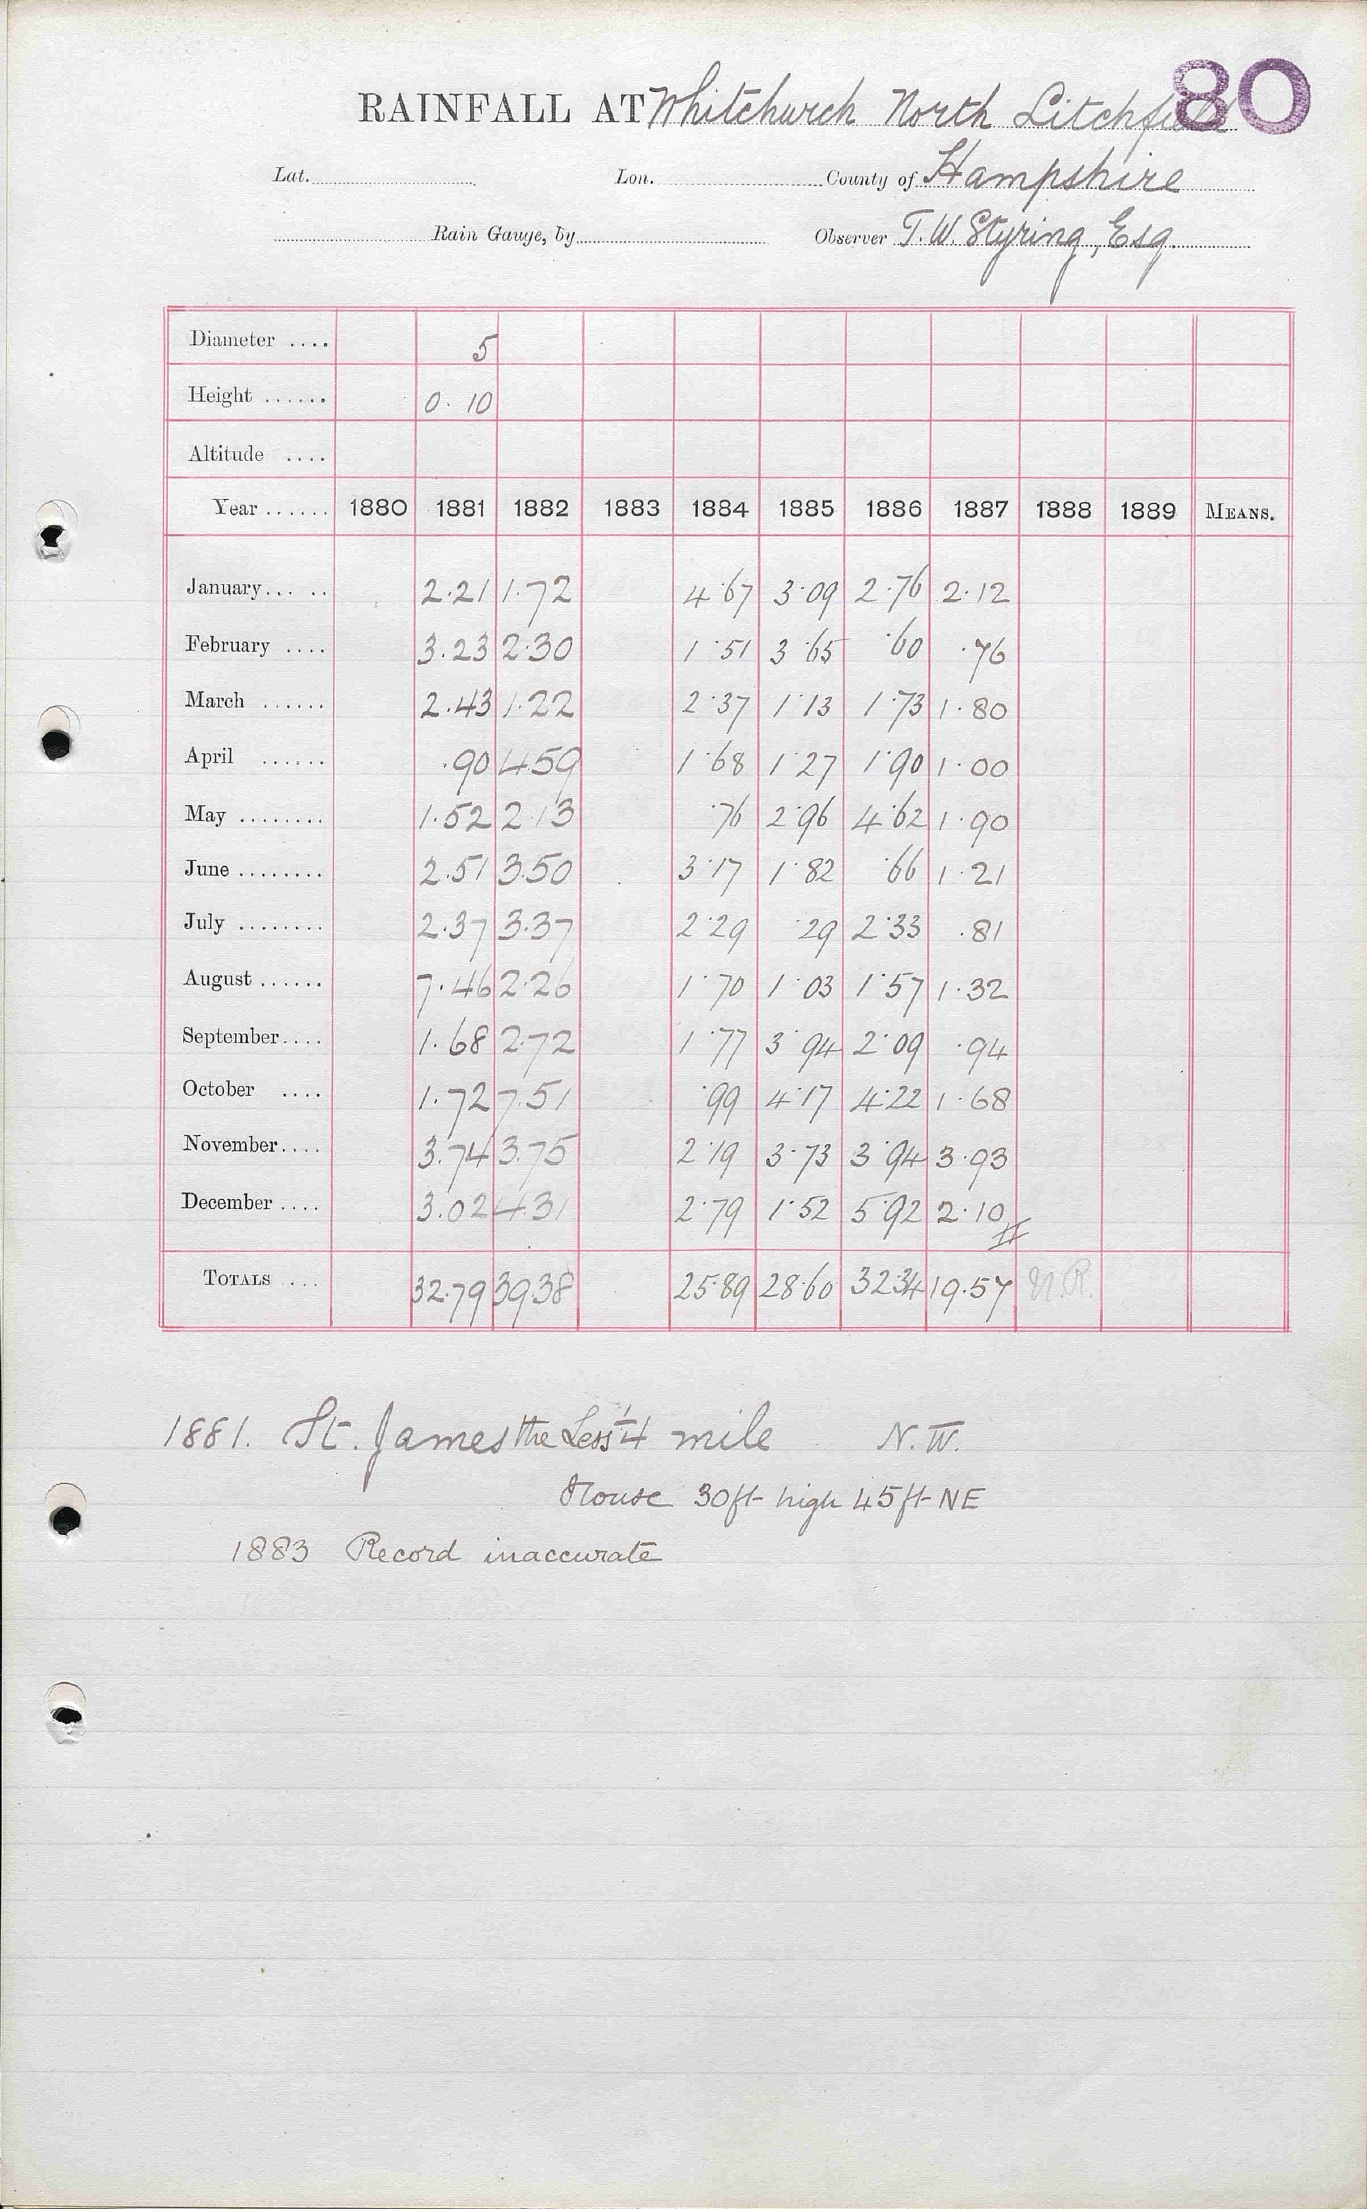 80
RAINFALL AT Whitchurch North Litchfield
Lat. Lon. County of Hampshire
Rain Gauge, by Observer T. W. Styring, Esq.
Diameter .... 5
Height ...... 0.10
Altitude ....
Year ...... 1880 1881 1882 1883 1884 1885 1886 1887 1888 1889 MEANS.
January... .. 2.21 1.72 4.67 3.09 2.76 2.12
February .... 3.23 2.30 1.51 3.65 .60 .76
March ...... 2.43 1.22 2.37 1.13 1.73 1.80
April ...... .90 4.59 1.68 1.27 1.90 1.00
May ........ 1.52 2.13 .76 2.96 4.62 1.90
June ........ 2.51 3.50 3.17 1.82 .66 1.21
July ........ 2.37 3.37 2.29 .29 2.33 .81
August ...... 7.46 2.26 1.70 1.03 1.57 1.32
September.... 1.68 2.72 1.77 3.94 2.09 .94
October .... 1.72 7.51 .99 4.17 4.22 1.68
November.... 3.74 3.75 2.19 3.73 3.94 3.93
December .... 3.02 4.31 2.79 1.52 5.92 2.10
TOTALS .... 32.79 39.38 25.89 28.60 32.34 19.57 N.R.
1881. St. James the Less 1/4 mile N.W.
House 30ft high 45ft NE
1883 Record inaccurate